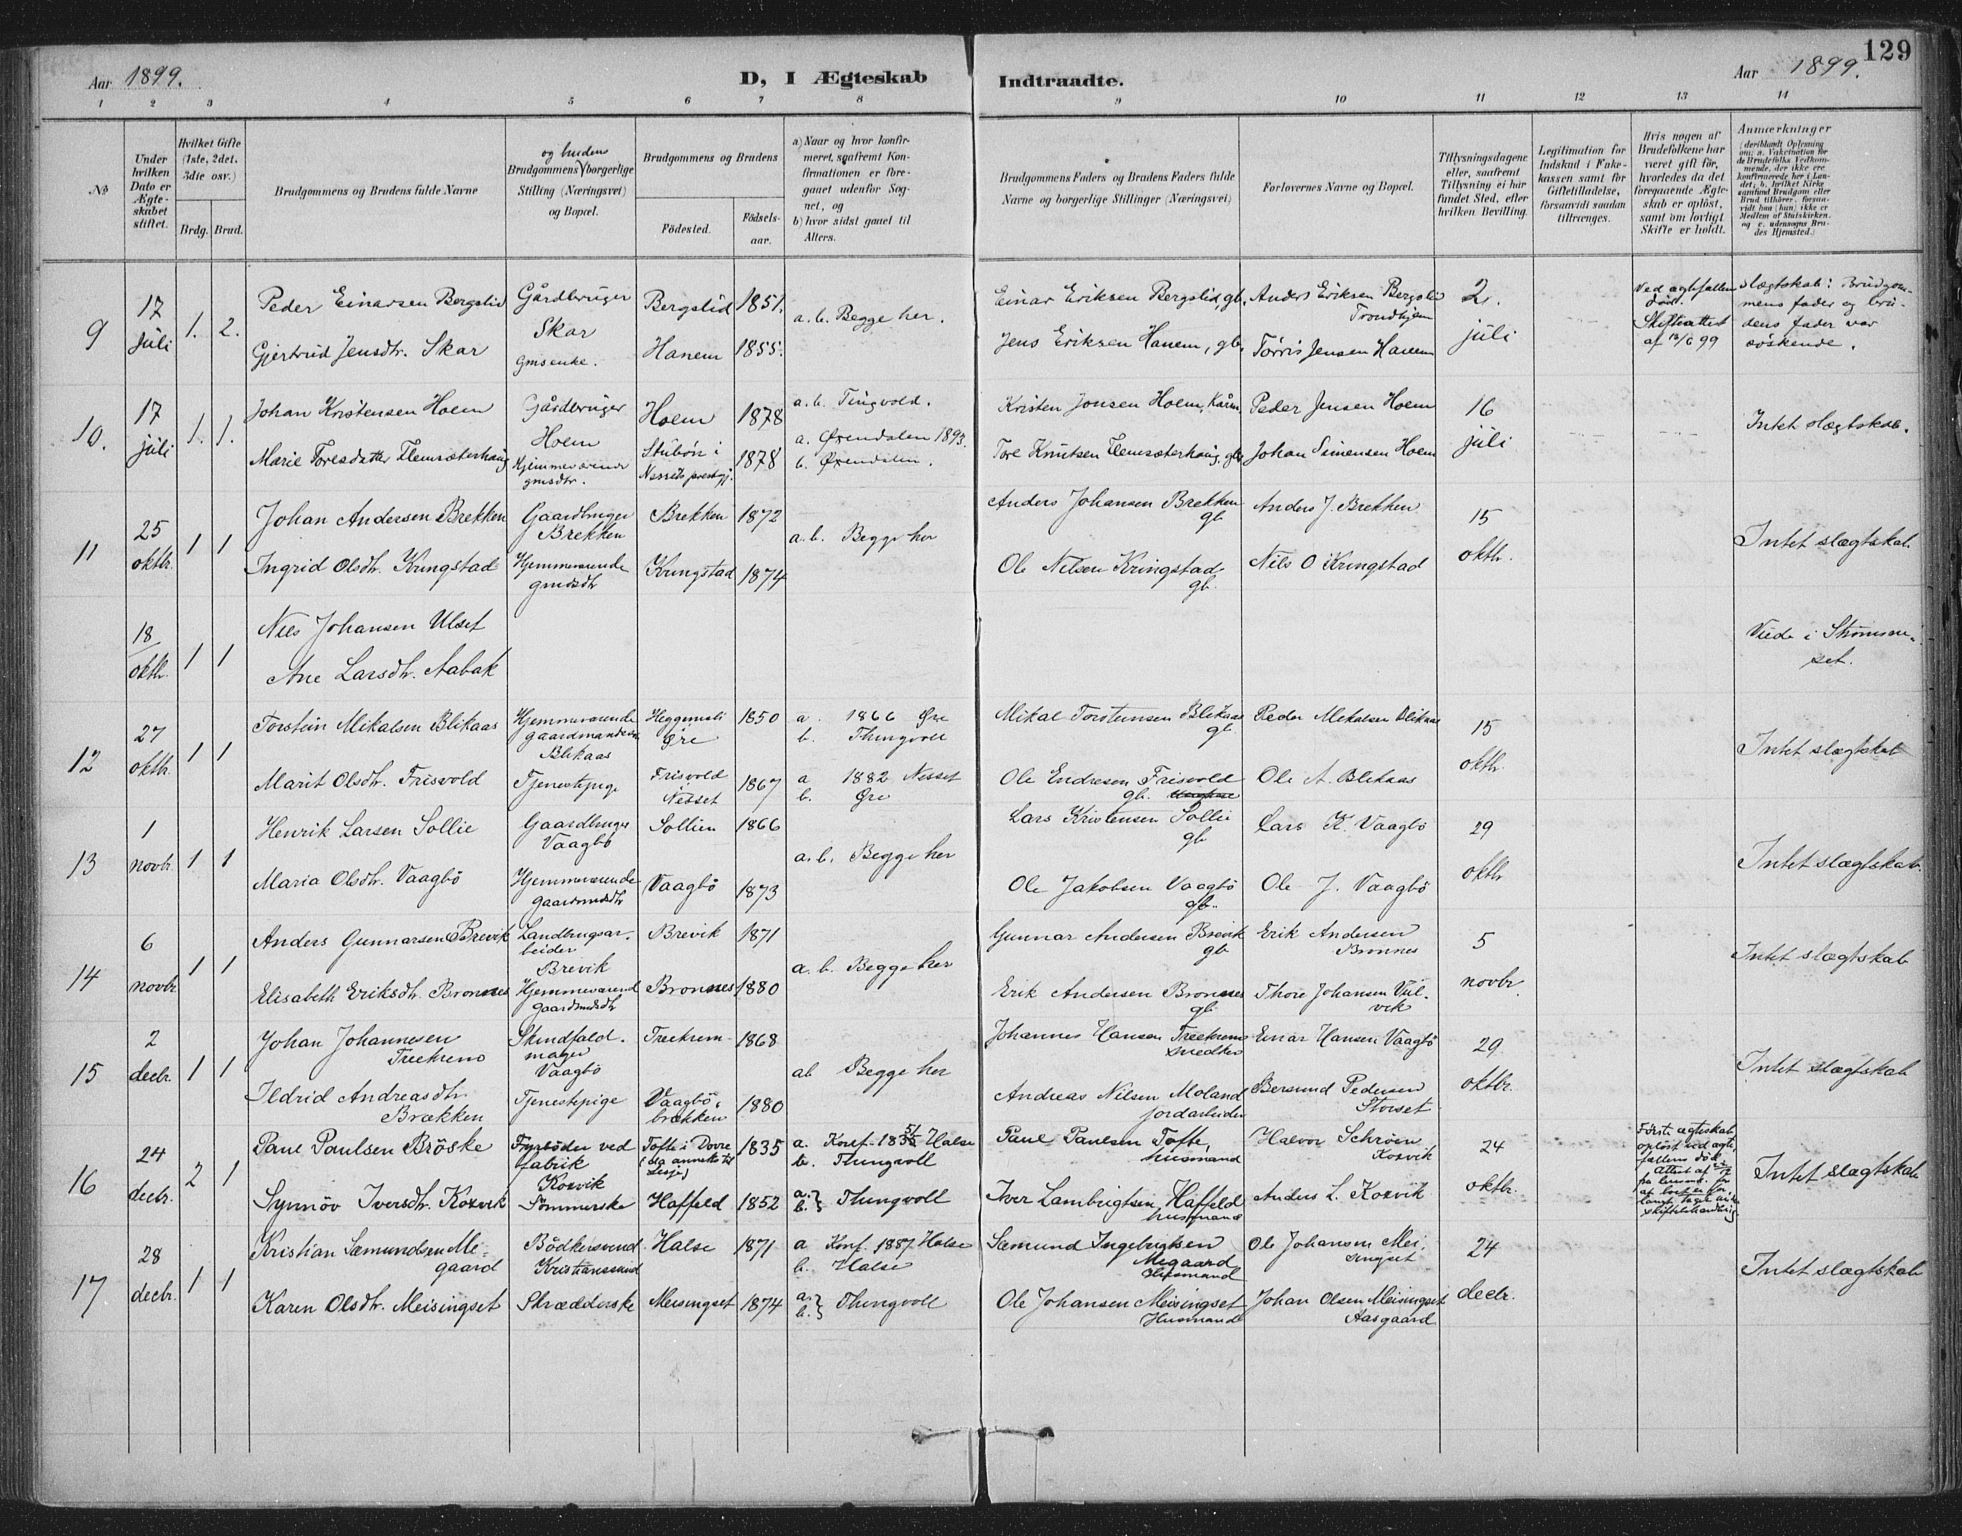 129
Aar 1899. D, I Ægteskab Indtraadte. Aar 1899.
1 2 3 4 5 6 7 8 9 10 11 12 13 14
No
Under hvilken Dato er Ægteskabet stiftet.
Hvilket Gifte (1ste, 2det, 3die osv.)
Brdg. Brud.
Brudgommens og Brudens fulde Navne
og brudens
Brudgommens borgerlige Stilling (Næringsvei) og Bopæl.
Brudgommens og Brudens
Födested. Födselsaar.
a) Naar og hvor konfirmeret, saafremt Konfirmationen er foregaaet udenfor Sognet, og
b) hvor sidst gaaet til Alters.
Brudgommens Faders og Brudens Faders fulde Navne og borgerlige Stillinger (Næringsvei)
Forlovernes Navne og Bopæl.
Tillysningsdagene eller, saafremt Tillysning ei har fundet Sted, efter hvilken Bevilling.
Legitimation for Indskud i Enkekassen samt for Giftetilladelse, forsaavidt saadan tiltrænges.
Hvis nogen af Brudefolkene har været gift før, hvorledes da det foregaaende Ægteskab er oplöst, samt om lovligt Skifte er holdt.
Anmærkninger
(deriblandt Oplysning om: a. Vakcination for de Brudefolks Vedkommende, der ikke ere konfirmerede her i Landet; b. hvilket Kirkesamfund Brudgom eller Brud tilhører, forsaavidt han (hun) ikke er Medlem af Statskirken, og c. udensogns Brudes Hjemsted.)
9 17 juli 1. 2. Peder Einarsen Bergslid Gårdbruger Skar Bergslid 1851. a. b. Begge her. Einar Eriksen Bergslid, gb. Anders Eriksen Bergslid Trondhjem 2. juli Ved ægtefællens død. Skifteattest af 13/6 99 Slægtskab: Brudgommens fader og brudens fader var søskende.
Gjertrud Jensdtr. Skar gmsenke. Hanem 1855. Jens Eriksen Hanem, gb. Tørris Jensen Hanem
10. 17 juli 1. 1. Johan Kristensen Hoem Gårdbruger Hoem Hoem 1878 a. b. Tingvold. Kristen Jonsen Hoem, Kårm. Peder Jensen Hoem 16 juli Intet slægtskab.
Marie Toresdatter Flemsæterhaug Hjemmeværende gmsdtr. Stubøn i Nessets prestegj. 1878 a. Øxendalen 1893. b. Øxendalen. Tore Knutsen Flemsæterhaug, gb. Johan Simensen Hoem
11 25 oktbr. 1 1 Johan Andersen Brekken Gaardbruger Brekken Brekken 1872 a. b. Begge her Anders Johansen Brekken gb Anders J. Brekken 15 oktbr. Intet slægtskab.
Ingrid Olsdtr. Kringstad Hjemmeværende gmdsdtr Kringstad 1874 Ole Nilsen Kringstad gb. Nils O Kringstad
18 oktbr. 1 1 Nils Johansen Ulset Viede i Strømsneset.
Ane Larsdtr. Aabak
12 27 oktbr. 1 1 Torstein Mikalsen Blikaas Hjemmeværende gaardmandssøn Blikaas Heggemsli Øre 1850 a. 1866 Øre b. Thingvoll Mikal Torsteinsen Blikaas gb. Peder Mikalsen Blikaas 15 oktbr. Intet slægtskab
Marit Olsdtr. Frisvold Tjenestepige Frisvold Nesset 1867 a 1882 Nesset b. Øre Ole Endresen Frisvold gb. Ole A. Blikaas
13 1 novbr 1 1 Henrik Larsen Sollie Gaardbruger Vaagbø Sollien 1866 a. b. Begge her Lars Kristensen Sollie gb Lars K. Vaagbø 29 oktbr Intet slægtskab.
Maria Olsdtr. Vaagbø Hjemmeværende gaardmdsdtr Vaagbø 1873 Ole Jakobsen Vaagbø gb. Ole J. Vaagbø
14 6 novbr 1 1 Anders Gunnarsen Brevik Landbrugsarbeider Brevik Brevik 1871 a. b. Begge her Gunnar Andersen Brevik gb Erik Andersen Bronnes 5 novbr. Intet slægtskab
Elisabeth Eriksdtr. Bronnes Hjemmeværend gaardmdsdtr Bronnes 1880 Erik Andersen Bronnes gb. Thore Johansen
15 2 decbr. 1 1 Johan Johannesen Treekrem Skindfeldmager Vaagbø Treekrem 1868 ab Begge her Johannes Hansen Treekrem snedker Einar Hansen Vaagbø 29 oktbr. Intet slægtskab
Ildrid Andreasdtr. Brækken Tjenestepige Vaagbøbrækken 1880 Andreas Nilsen Moland jordarbeider Bersund Pedersen Storset
16 24 decbr. 2 1 Paul Paulsen Brøske Fyrbøder ved fabrik Koxvik Tofte i Dovre 1835 a. Konf. Halse b. Thingvoll Paul Paulsen Tofte, husmand Halvor Schrøen Koxvik 24 oktbr. Første ægteskab opløst ved ægtefællens død. Intet slægtskab
Synnøv Iversdtr. Koxvik Sømmerske Haffeld 1852 a. b. } Thingvoll Iver Lambrigtsen Haffeld husmand Anders L. Koxvik
17 28 decbr. 1 1 Kristian Sæmundsen Megaard Bødkersvend Kristianssund Halse 1871 a Konf. 1887 Halse b. Halse Sæmund Ingebrigtsen Megaard Husmand Ole Johansen Meisingset 24 decbr. Intet slægtskab
Karen Olsdtr. Meisingset Skrædderske Meisingset 1874 a. b. } Thingvoll Ole Johansen Meisingset Husmand Johan Olsen Meisingset Aasgaard